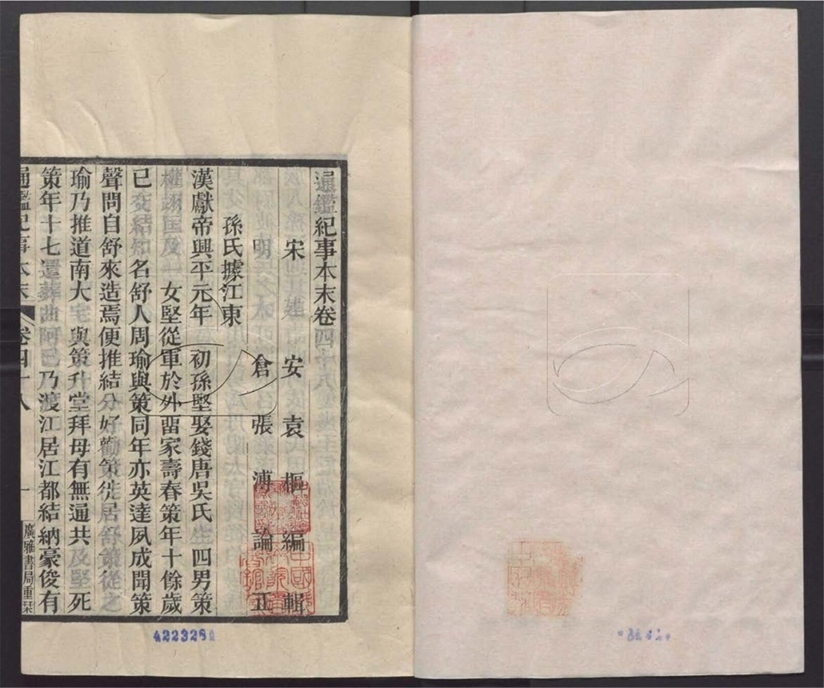 通鑑紀事本末卷四十八
宋 安 袁 樞 編 輯
明 倉 張 溥 論 正
孫氏據江東
漢獻帝興平元年 初孫堅娶錢唐吳氏生四男策
權翊匡及一女堅從軍於外留家壽春策年十餘歲
已交結知名舒人周瑜與策同年亦英達夙成聞策
聲問自舒來造焉便推結分好勸策徙居舒策從之
瑜乃推道南大宅與策升堂拜母有無通共及堅死
策年十七還葬曲阿已乃渡江居江都結納豪俊有
通鑑紀事本末 卷四十八 一 廣雅書局重栞
422328